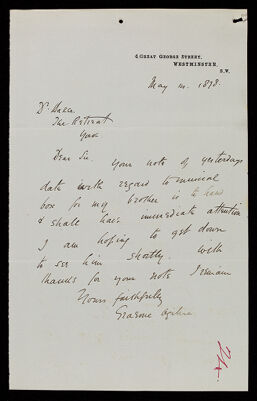 6 GREAT GEORGE STREET,
WESTMINSTER,
S.W.
May 14. 1898.
Dr.
The Retreat
York
Dear Sir Your note of yesterdays
date with regard to musical
box for my brother is to hand
& shall have immediate attention
I am hoping to get down
to see him shortly. With
thanks for your note I remain
Yours faithfully
Graeme Ogilvie